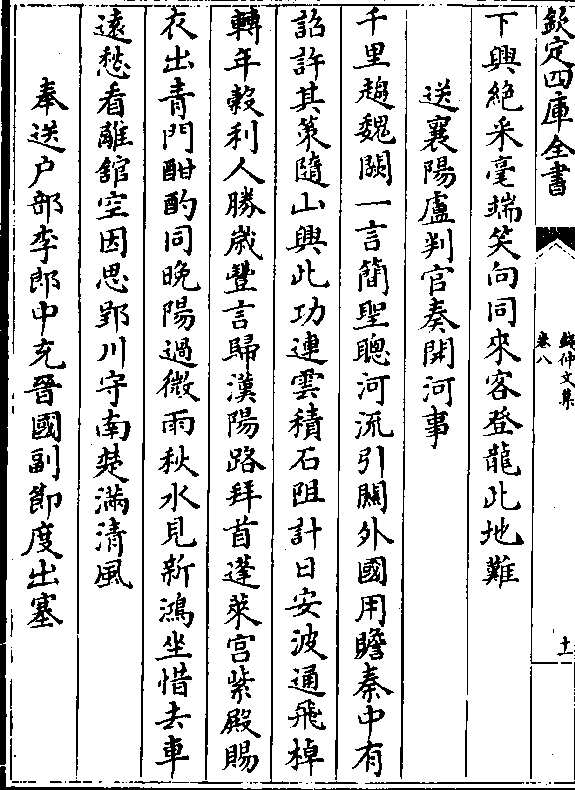 欽定四庫全書
錢仲文集
卷八
十一
下興絶采毫端笑向同來客登龍此地難
送襄陽盧判官奏開河事
千里趨魏闕一言簡聖聰河流引關外國用贍秦中有
詔許其策隨山興此功連雲積石阻計日安波通飛棹
轉年榖利人勝歳豐言歸漢陽路拜首蓬萊宫紫殿賜
衣出青門酣酌同晚陽過微雨秋水見新鴻坐惜去車
遠愁看離舘空因思郢川守南楚滿清風
奉送户部李郎中充晉國副節度出塞